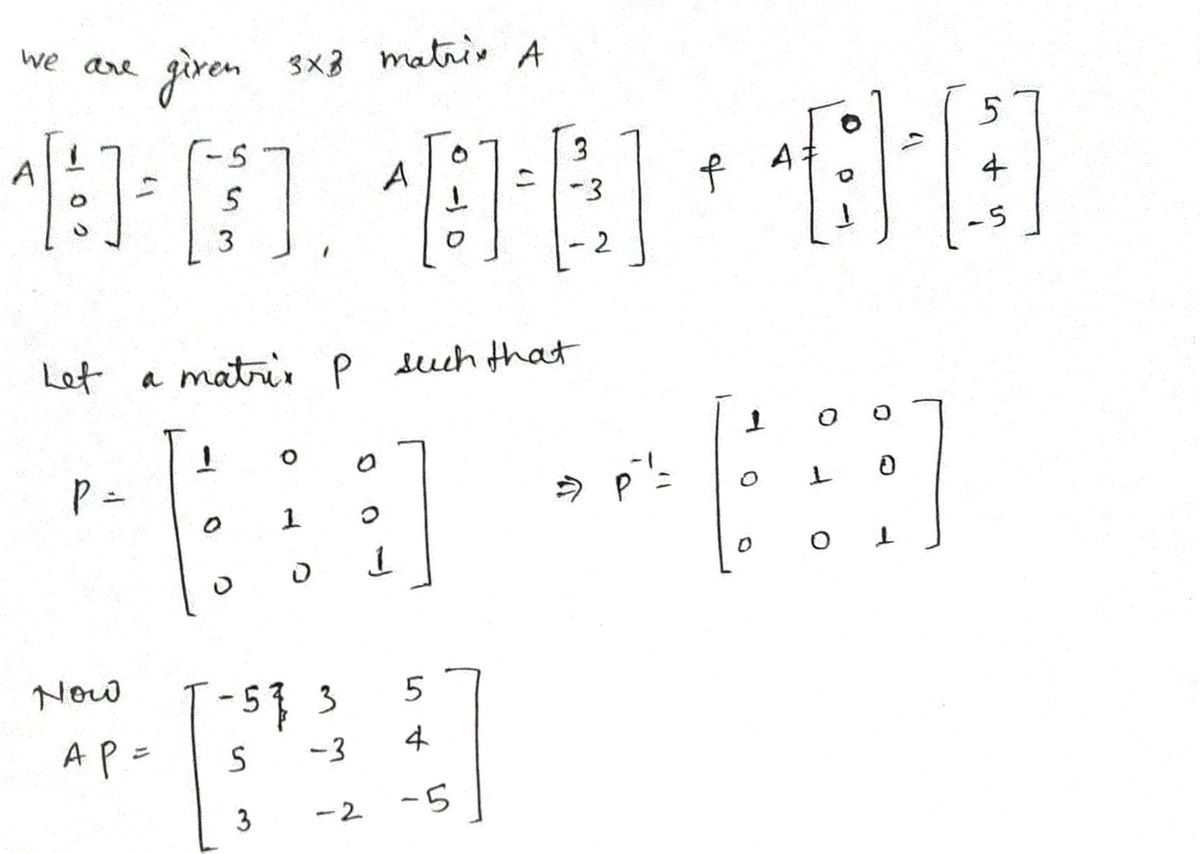 we are given 3x3 matrix A
A [1 0 0] = [-5 5 3], A [0 1 0] = [3 -3 -2] & A = [0 0 1] = [5 4 -5]
Let a matrix P such that
P = [1 0 0 ; 0 1 0 ; 0 0 1] ⇒ P⁻¹ = [1 0 0 ; 0 1 0 ; 0 0 1]
Now
AP = [-5 3 5 ; 5 -3 4 ; 3 -2 -5]